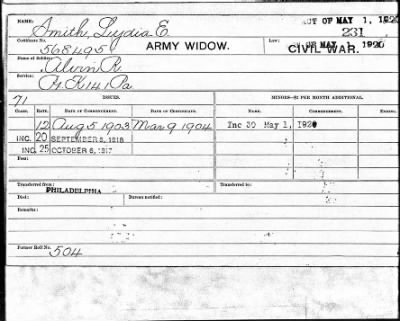 NAME: ACT OF MAY 1, 1920
Smith, Lydia E. 231
Certificate No. Law: OF MAY 1, 1920
568495 ARMY WIDOW. CIVIL WAR.
Name of Soldier:
Alvin R.
Service:
K 141 Pa
71 ISSUES. MINORS—$2 PER MONTH ADDITIONAL.
CLASS. RATE. DATE OF COMMENCEMENT. DATE OF CERTIFICATE. NAME. COMMENCEMENT. ENDING.
12 Aug 5 1903 Mar 9 1904 Inc 30 May 1, 1920
INC. 20 SEPTEMBER 8, 1916
INC. 25 OCTOBER 6, 1917
Transferred from Transferred to
PHILADELPHIA
Died: Bureau notified:
Remarks:
Former Roll No.
504